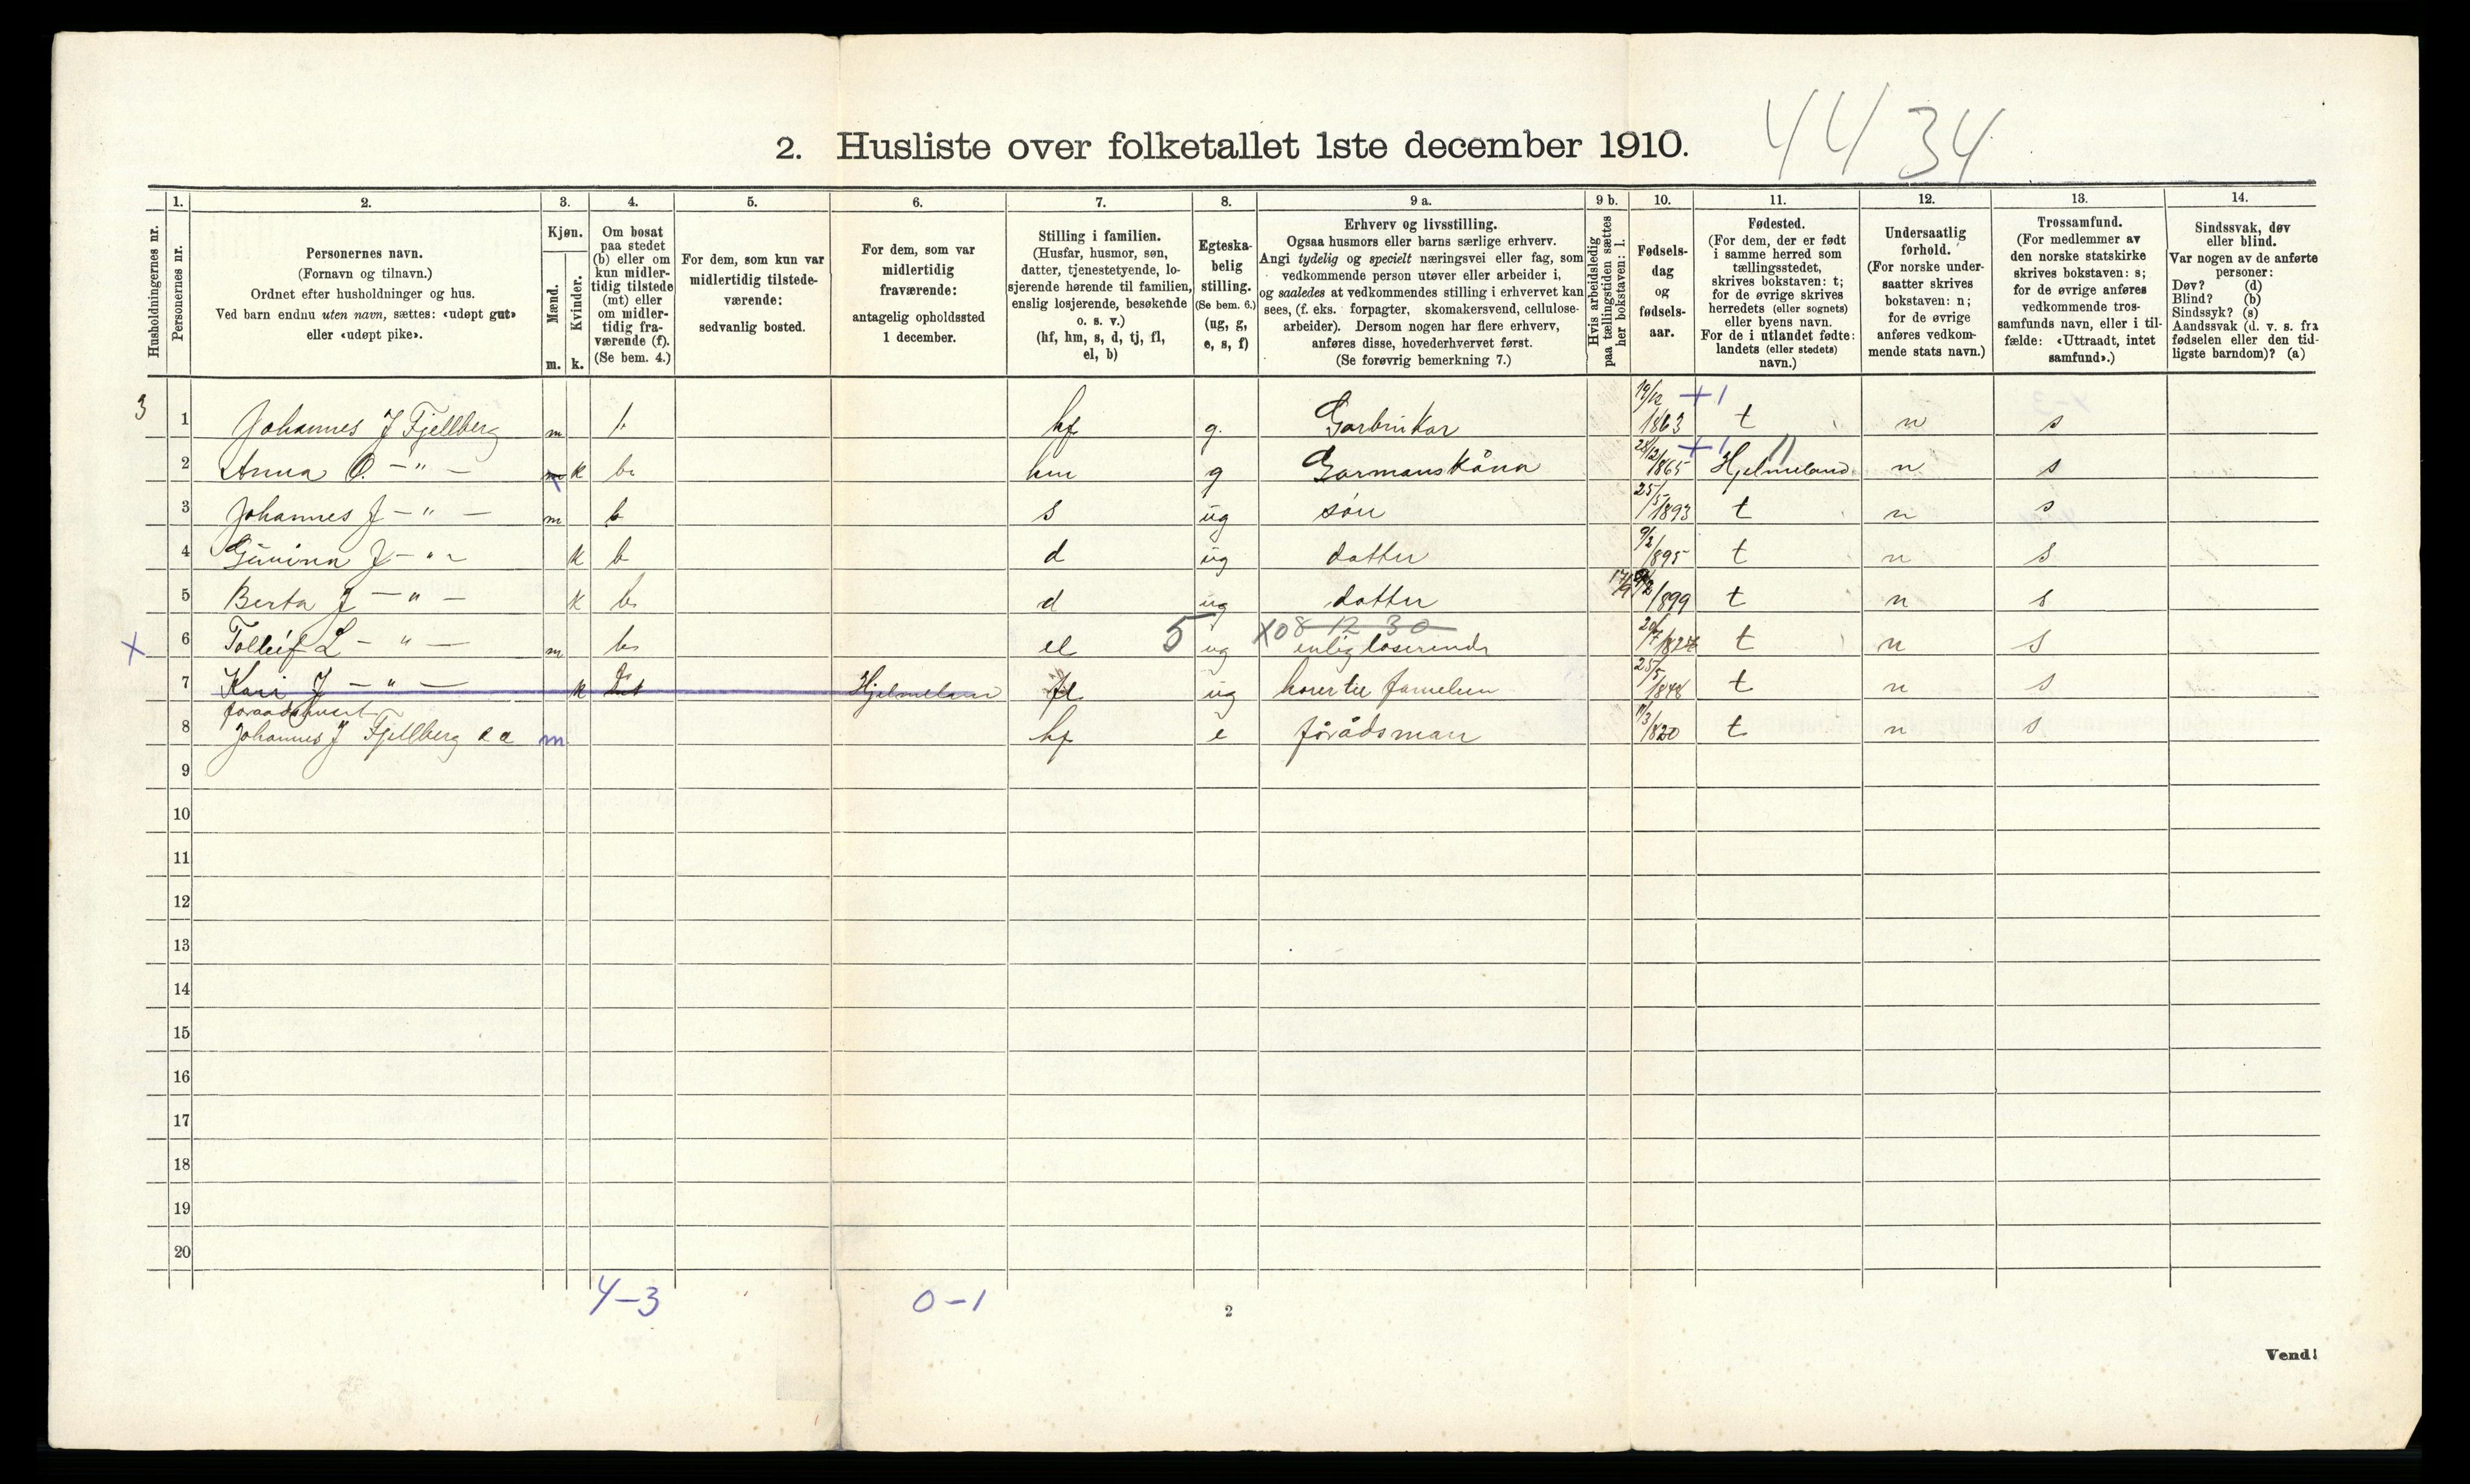 2. Husliste over folketallet 1ste december 1910.
44 34
1. 2. 3. 4. 5. 6. 7. 8. 9 a. 9 b. 10. 11. 12. 13. 14.
Husholdningernes nr.
Personernes nr.
Personernes navn.
(Fornavn og tilnavn.)
Ordnet efter husholdninger og hus.
Ved barn endnu uten navn, sættes: «udøpt gut»
eller «udøpt pike».
Kjøn.
Mænd.
Kvinder.
m. k.
Om bosat
paa stedet
(b) eller om
kun midler-
tidig tilstede
(mt) eller
om midler-
tidig fra-
værende (f).
(Se bem. 4.)
For dem, som kun var
midlertidig tilstede-
værende:
sedvanlig bosted.
For dem, som var
midlertidig
fraværende:
antagelig opholdssted
1 december.
Stilling i familien.
(Husfar, husmor, søn,
datter, tjenestetyende, lo-
sjerende hørende til familien,
enslig losjerende, besøkende
o. s. v.)
(hf, hm, s, d, tj, fl,
el, b)
Egteska-
belig
stilling.
(Se bem. 6.)
(ug, g,
e, s, f)
Erhverv og livsstilling.
Ogsaa husmors eller barns særlige erhverv.
Angi tydelig og specielt næringsvei eller fag, som
vedkommende person utøver eller arbeider i,
og saaledes at vedkommendes stilling i erhvervet kan
sees, (f. eks. forpagter, skomakersvend, cellulose-
arbeider). Dersom nogen har flere erhverv,
anføres disse, hovederhvervet først.
(Se forøvrig bemerkning 7.)
Hvis arbeidsledig
paa tællingstiden sættes
her bokstaven: l.
Fødsels-
dag
og
fødsels-
aar.
Fødested.
(For dem, der er født
i samme herred som
tællingsstedet,
skrives bokstaven: t;
for de øvrige skrives
herredets (eller sognets)
eller byens navn.
For de i utlandet fødte:
landets (eller stedets)
navn.)
Undersaatlig
forhold.
(For norske under-
saatter skrives
bokstaven: n;
for de øvrige
anføres vedkom-
mende stats navn.)
Trossamfund.
(For medlemmer av
den norske statskirke
skrives bokstaven: s;
for de øvrige anføres
vedkommende tros-
samfunds navn, eller i til-
fælde: «Uttraadt, intet
samfund».)
Sindssvak, døv
eller blind.
Var nogen av de anførte
personer:
Døv? (d)
Blind? (b)
Sindssyk? (s)
Aandssvak (d. v. s. fra
fødselen eller den tid-
ligste barndom)? (a)
3 1 Johannes J Fjellberg m b hf g. Garbrukar 19/12 1863 +1 t n s
2 Anna O. - " - k b. hm g Garmanskåna 28/12 1865 +1 Hjelmeland n s
3 Johannes J - " - m b s ug søn 25/5 1893 t n s
4 J - " - k b d ug datter 9/2 1895 t n s
5 Berta J - " - k b. d ug datter 1899 t n s
X 6 Tolleif L - " - m b. el 5 ug X08 12 30 enlig loserende t n s
7 Kari J - " - k Hjelmeland fl ug hører til familien 25/5 1848 t n s
8 Johannes J Fjellberg m hf e førådsman 1820 t n s
9
10
11
12
13
14
15
16
17
18
19
20
4-3 0-1
2
Vend!